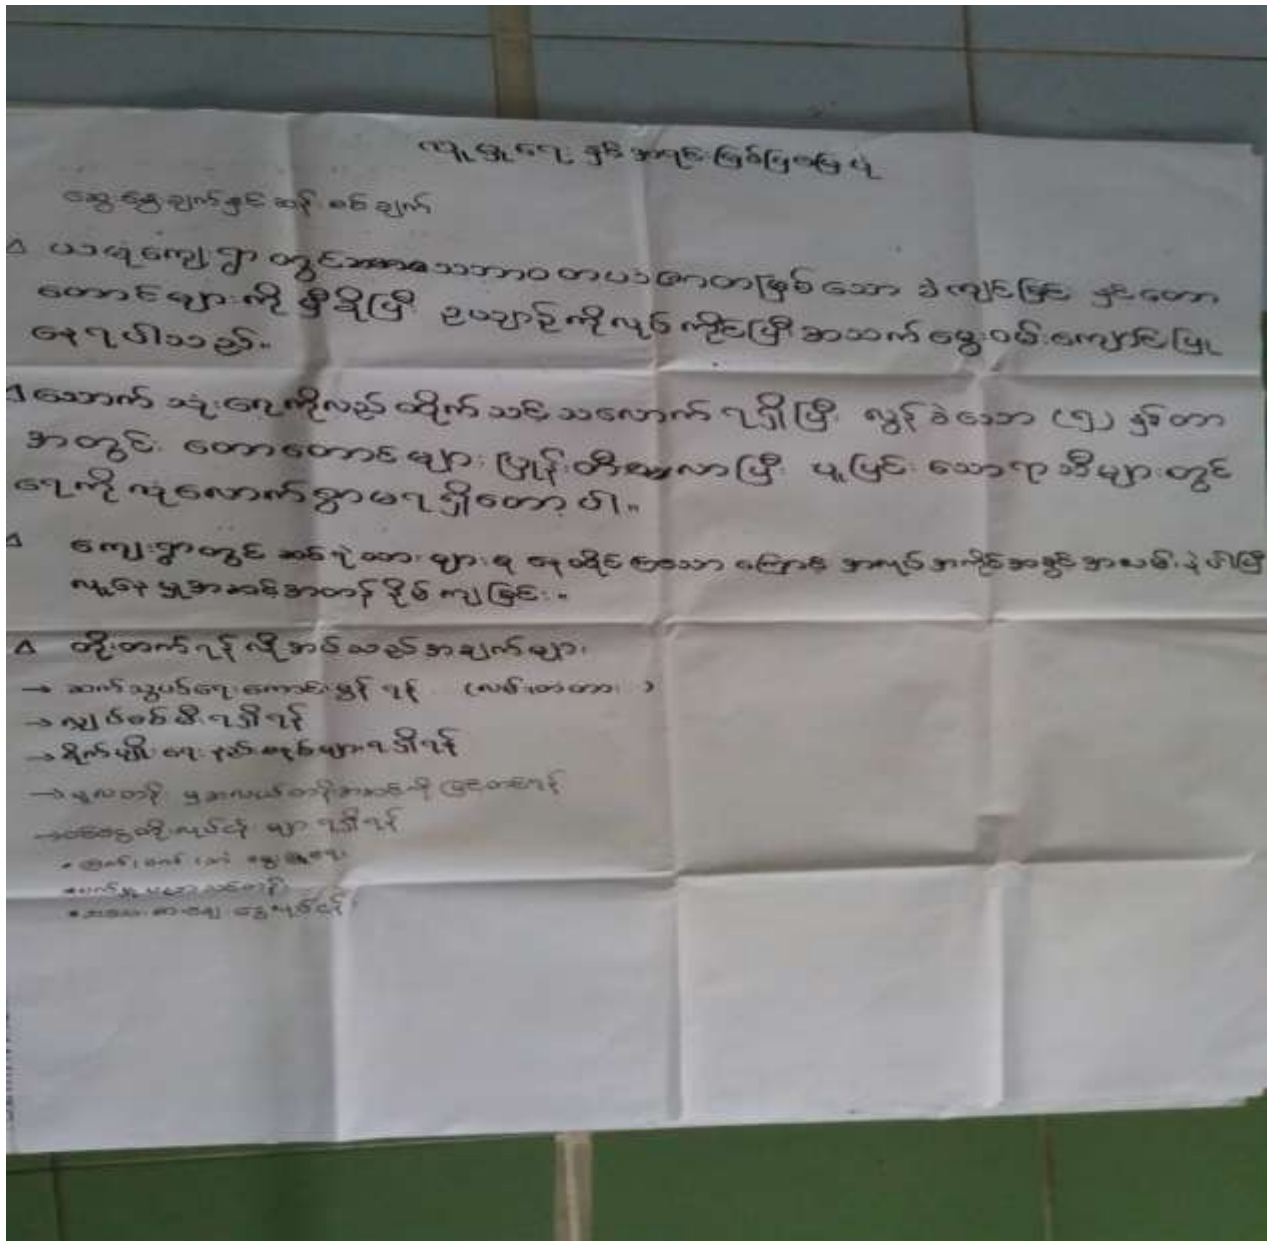 လူမှုရေး နှင့် အရင်းမြစ်ပြမြေပုံ
ဆွေးနွေးချက်နှင့် ဆန်းစစ်ချက်
ယာမုံကျေးရွာ တွင် သဘာဝ တပသဇာတဖြစ်သော ခဲကျင်းခြင်း နှင့်တော
တောင်များကို မှီခိုပြီး ဥယျာဉ်ကိုလုပ်ကိုင်ပြီးအသက်မွေးဝမ်းကျောင်းပြု
နေရပါသည်။
သောက်သုံးရေကိုလည်း ထိုက်သင့်သလောက် ရရှိပြီး လွန်ခဲ့သော (၅) နှစ်တာ
အတွင်း တောတောင်များ ပြုန်းတီးလာပြီး ပူပြင်းသောရာသီများတွင်
ရေကို လုံလောက်စွာမရရှိတော့ပါ။
ကျေးရွာတွင် စစ်ရဲသားများမှ နေထိုင် သော ကြောင့် အလုပ်အကိုင်အခွင့်အလမ်းနဲပါးပြီး
လူနေမှုအဆင့်အတန်နိမ့်ကျခြင်း။
တိုးတက်ရန် လိုအပ်သည့်အချက်များ
→ ဆက်သွယ်ရေးကောင်းမွန်ရန် (လမ်း၊တံတား)
→ လျှပ်စစ်မီးရရှိရန်
→ စိုက်ပျိုးရေးနည်းစနစ်များရရှိရန်
→ မူလတန်းမှအလယ်တန်းအဆင့်သို့ မြှင့်တင်ရန်
→ လုပ်ငန်းများ ရရှိရန်
• ကြက်၊ဝက်၊ဘဲ မွေးမြူရေး